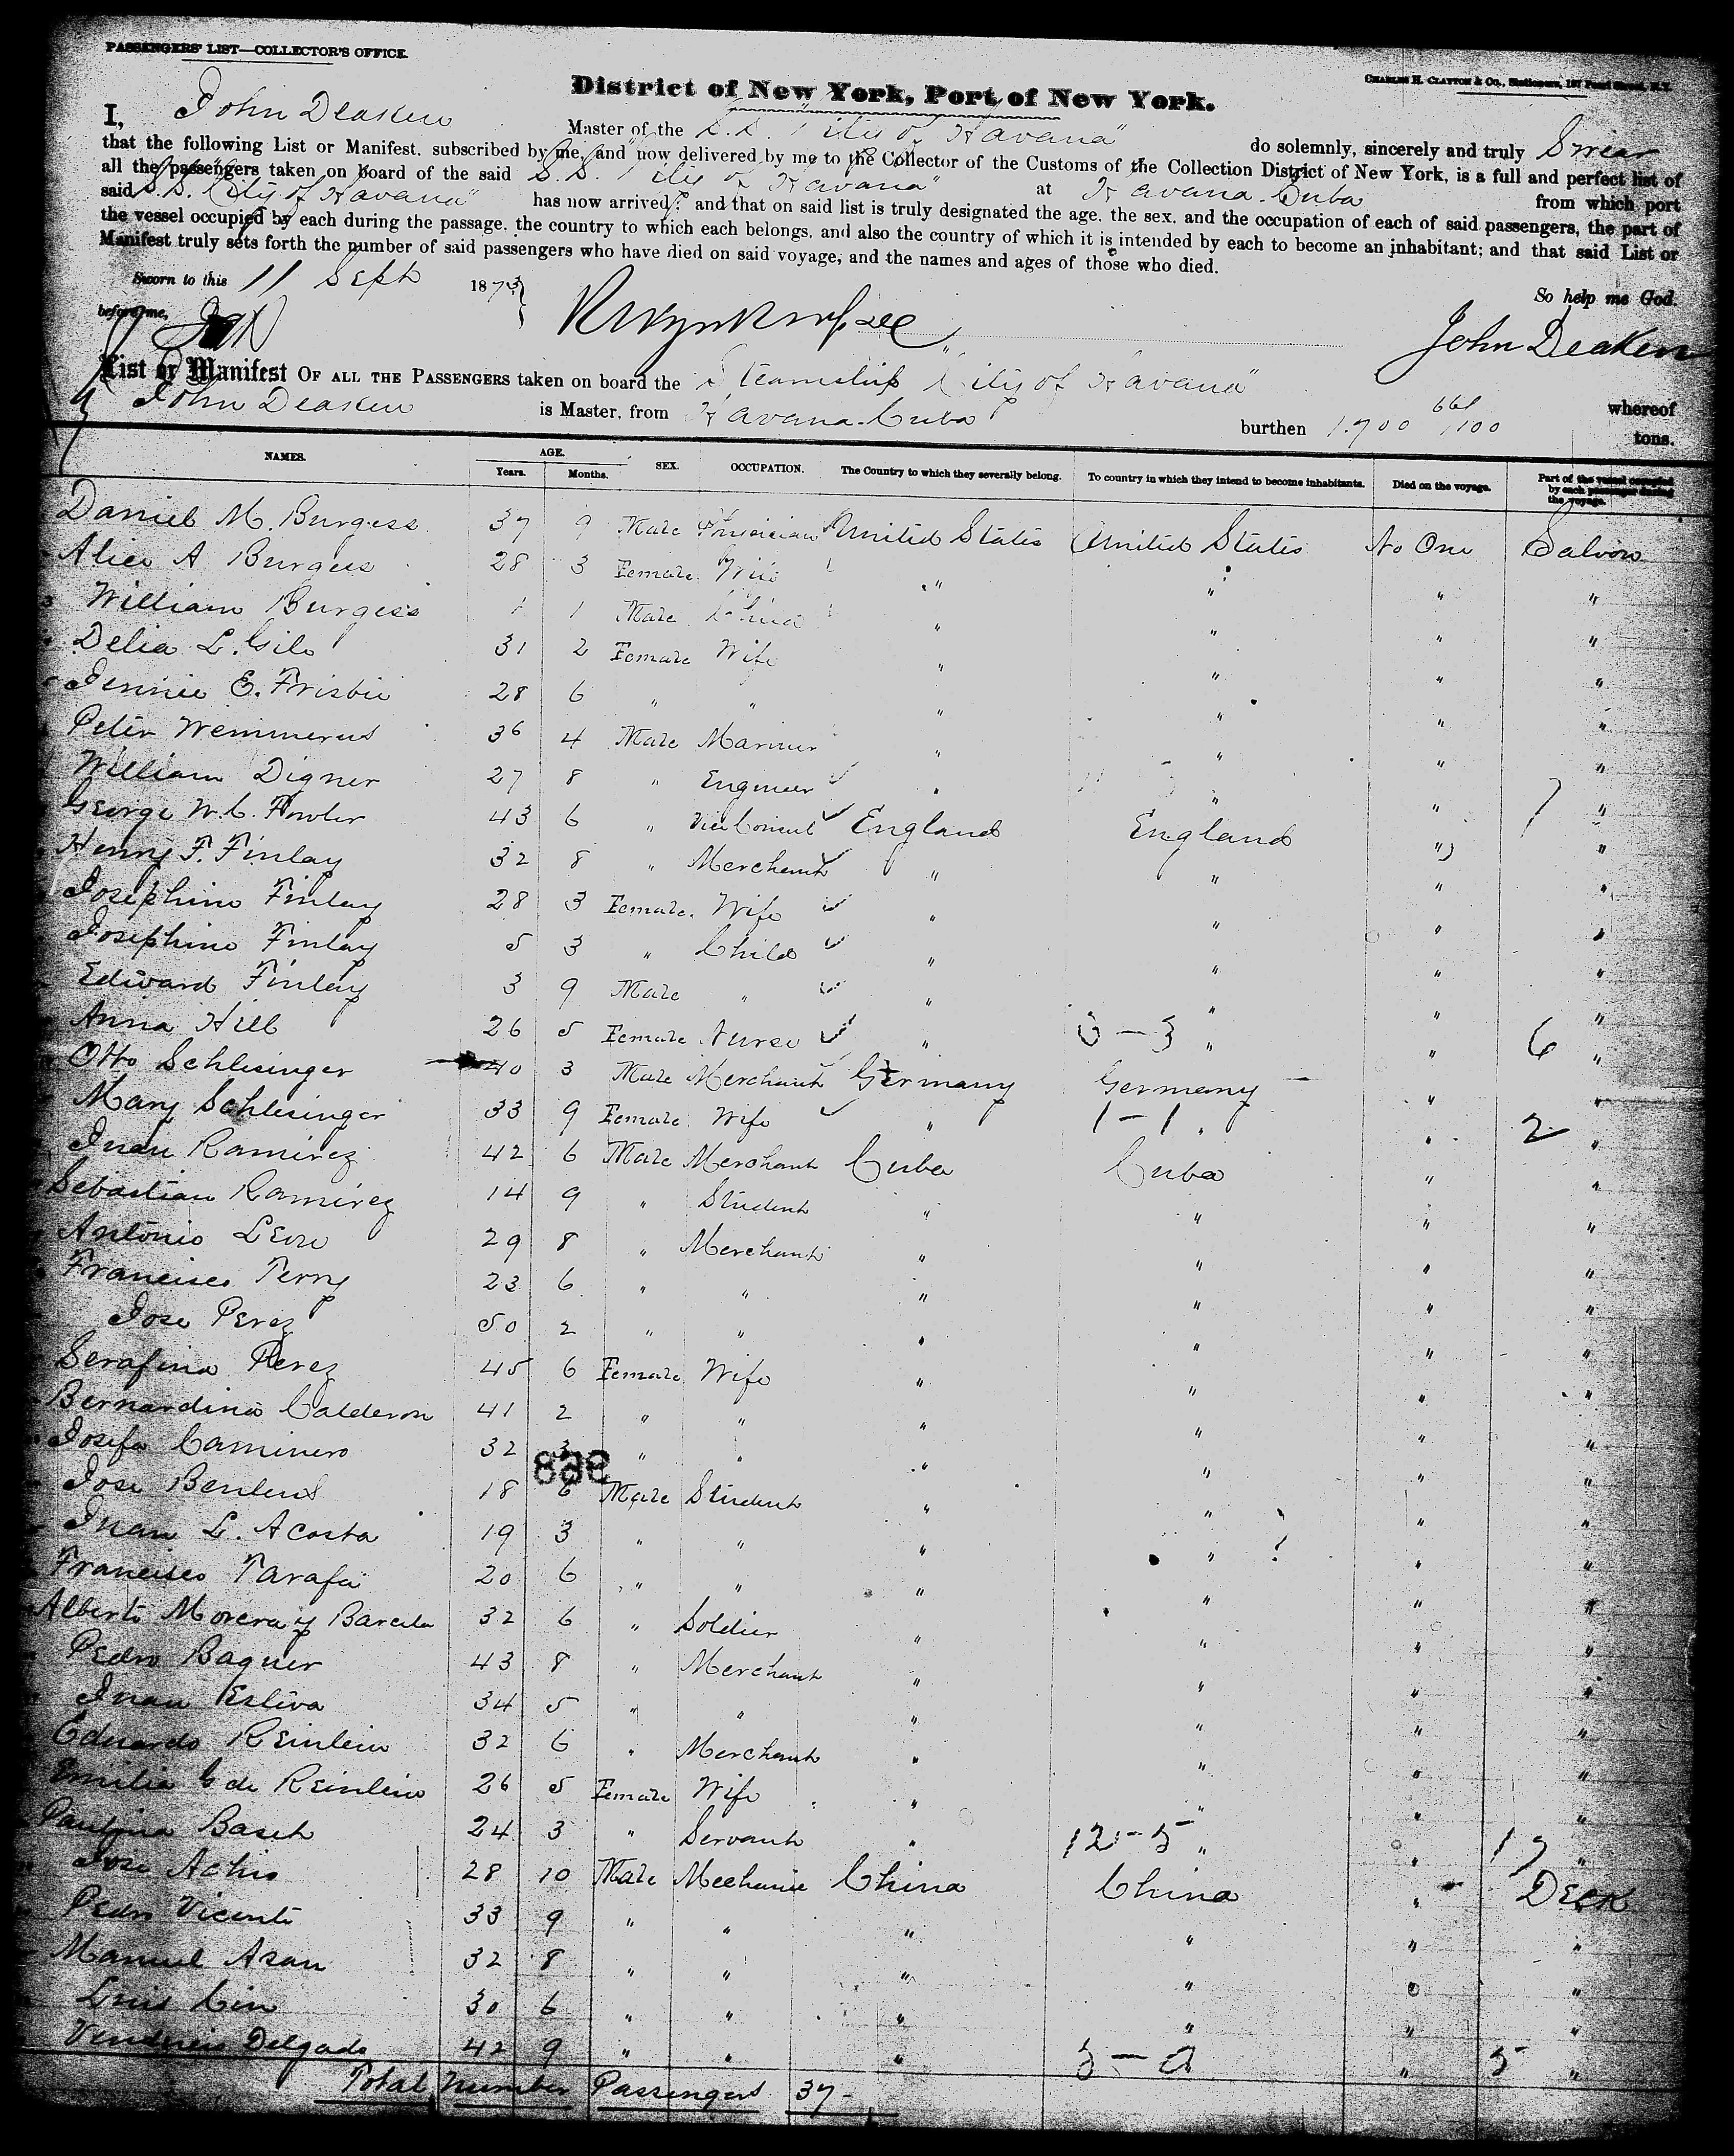 PASSENGERS' LIST—COLLECTOR'S OFFICE.
CHARLES H. CLAYTON & Co., Stationers, 157 Pearl Street, N.Y.
District of New York, Port of New York.
I, John Deaken Master of the S.S. "City of Havana" do solemnly, sincerely and truly Swear
that the following List or Manifest, subscribed by me, and now delivered by me to the Collector of the Customs of the Collection District of New York, is a full and perfect list of
all the passengers taken on board of the said S.S. "City of Havana" at Havana Cuba from which port
said S.S. "City of Havana" has now arrived; and that on said list is truly designated the age, the sex, and the occupation of each of said passengers, the part of
the vessel occupied by each during the passage, the country to which each belongs, and also the country of which it is intended by each to become an inhabitant; and that said List or
Manifest truly sets forth the number of said passengers who have died on said voyage, and the names and ages of those who died.
Sworn to this 11 Sept 1873
So help me God.
before me,
John Deaken
List or Manifest OF ALL THE PASSENGERS taken on board the Steamship "City of Havana" whereof
John Deaken is Master, from Havana Cuba burthen 1700 661/100 tons.
NAMES. AGE. Years. Months. SEX. OCCUPATION. The Country to which they severally belong. To country in which they intend to become inhabitants. Died on the voyage. Part of the vessel occupied by each passenger during the voyage.
Daniel M. Burgess 37 9 Male Physician United States United States No One Saloon
Alice A Burgess 28 3 Female Wife " " " "
William Burgess 1 1 Male Child " " " "
Delia L. Gile 31 2 Female Wife " " " "
Jennie E. Frisbie 28 6 " " " " " "
Peter Wemmerus 36 4 Male Mariner " " " "
William Digner 27 8 " Engineer " " " " 7
George W. C. Fowler 43 6 " Vice Consul England England " "
Henry F. Finlay 32 8 " Merchant " " " "
Josephine Finlay 28 3 Female Wife " " " "
Josephine Finlay 5 3 " Child " " " "
Edward Finlay 3 9 Male " " " " "
Anna Hill 26 5 Female Nurse " 3-3 " " 6 "
Otto Schlesinger 40 3 Male Merchant Germany Germany " "
Mary Schlesinger 33 9 Female Wife " 1-1 " " 2 "
Juan Ramirez 42 6 Male Merchant Cuba Cuba " "
Sebastian Ramirez 14 9 " Student " " " "
Antonio Leon 29 8 " Merchant " " " "
Francisco Terry 23 6 " " " " " "
Jose Perez 50 2 " " " " " "
Serafina Perez 45 6 Female Wife " " " "
Bernardina Calderon 41 2 " " " " " "
Josefa Caminero 32 3 " " " " " "
868
Jose 18 6 Male Student " " " "
Juan L. Acosta 19 3 " " " " " "
Francisco Tarafa 20 6 " " " " " "
Alberto Morera y Barcelo 32 6 " Soldier " " " "
Pedro Baguer 43 8 " Merchant " " " "
Juan Esliva 34 5 " " " " " "
Eduardo Reinlein 32 6 " Merchant " " " "
Emilia G de Reinlein 26 5 Female Wife " " " "
Paulina Basch 24 3 " Servant " 12-5 " " 17 "
Jose Achis 28 10 Male Mechanic China China " Deck
Pedro Vicente 33 9 " " " " " "
Manuel Asan 32 8 " " " " " "
Luis Cin 30 6 " " " " " "
Delgado 42 9 " " " 5-0 " 5 "
Total Number Passengers 37-